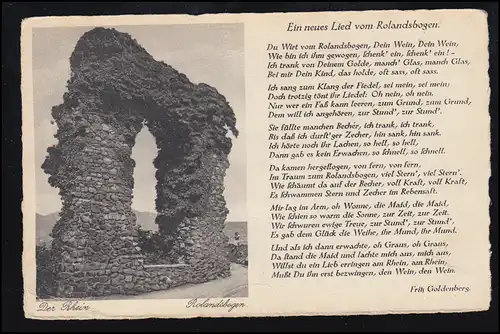 Ein neues Lied vom Rolandsbogen.
Du Wirt vom Rolandsbogen, Dein Wein, Dein Wein,
Wie bin ich ihm gewogen, schenk' ein, schenk' ein! -
Ich trank von Deinem Golde, manch' Glas, manch Glas,
Bei mir Dein Kind, das holde, oft sass, oft sass.
Ich sang zum Klang der Fiedel, sei mein, sei mein;
Doch trotzig tönt ihr Liedel: Oh nein, oh nein.
Nur wer ein Faß kann leeren, zum Grund, zum Grund,
Dem will ich angehören, zur Stund', zur Stund'.
Sie füllte manchen Becher, ich trank, ich trank,
Bis daß ich durst'ger Zecher, hin sank, hin sank.
Ich hörte noch ihr Lachen, so hell, so hell,
Dann gab es kein Erwachen, so schnell, so schnell.
Da kamen hergeflogen, von fern, von fern,
Im Traum zum Rolandsbogen, viel Stern', viel Stern'.
Wie schäumt da auf der Becher, voll Kraft, voll Kraft,
Es schwammen Stern und Zecher im Rebensaft.
Mir lag im Arm, oh Wonne, die Maid, die Maid,
Wie schien so warm die Sonne, zur Zeit, zur Zeit.
Wir schwuren ewige Treue, zur Stund', zur Stund',
Es gab dem Glück die Weihe, ihr Mund, ihr Mund.
Und als ich dann erwachte, oh Graus, oh Graus,
Da stand die Maid und lachte mich aus, mich aus,
Willst du ein Lieb erringen am Rhein, am Rhein,
Mußt Du ihn erst bezwingen, den Wein, den Wein.
Fritz Goldenberg.
Der Rhein
Rolandsbogen.